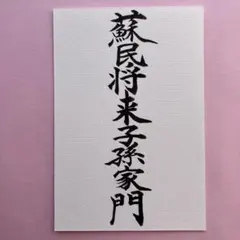 蘇民将来子孫家門